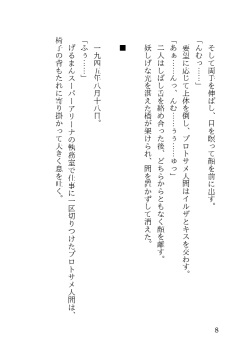 そして両手を伸ばし、口を瞑って顔を前に出す。
「んむっ……」
要望に応じて上体を倒し、プロトサメ人間はイルザとキスを交わす。
「あぁ……んっ、んむ……うぅ……ゅっ」
二人はしばし舌を絡め合った後、どちらからともなく顔を離す。
妖しげな光を湛えた橋が架けられ、間を置かずして消えた。
■
一九四五年八月十八日。
「ふぅ……」
げるまんスーパーアリーナの執務室で仕事に一区切りつけたプロトサメ人間は、
椅子の背もたれに寄り掛かって大きく息を吐く。
8